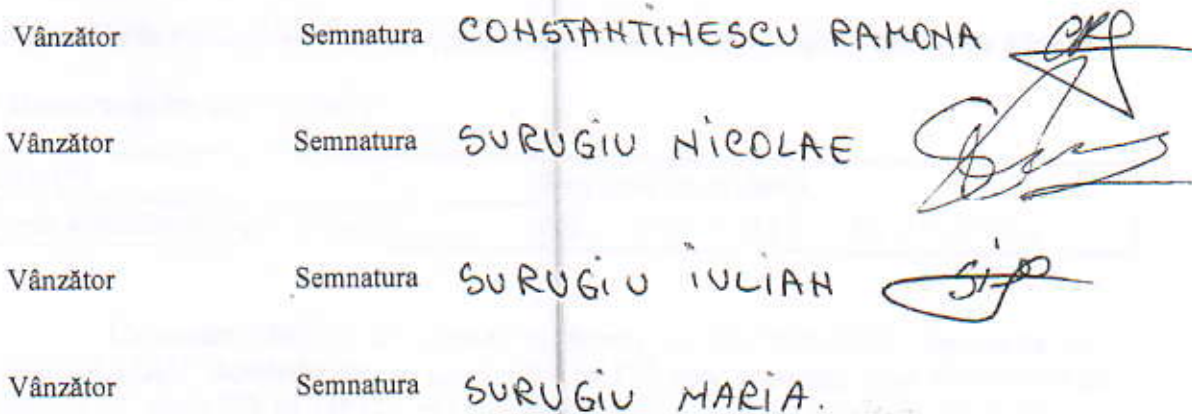 Vânzător Semnatura CONSTANTINESCU RAMONA
Vânzător Semnatura SURUGIU NICOLAE
Vânzător Semnatura SURUGIU IULIAN
Vânzător Semnatura SURUGIU MARIA.